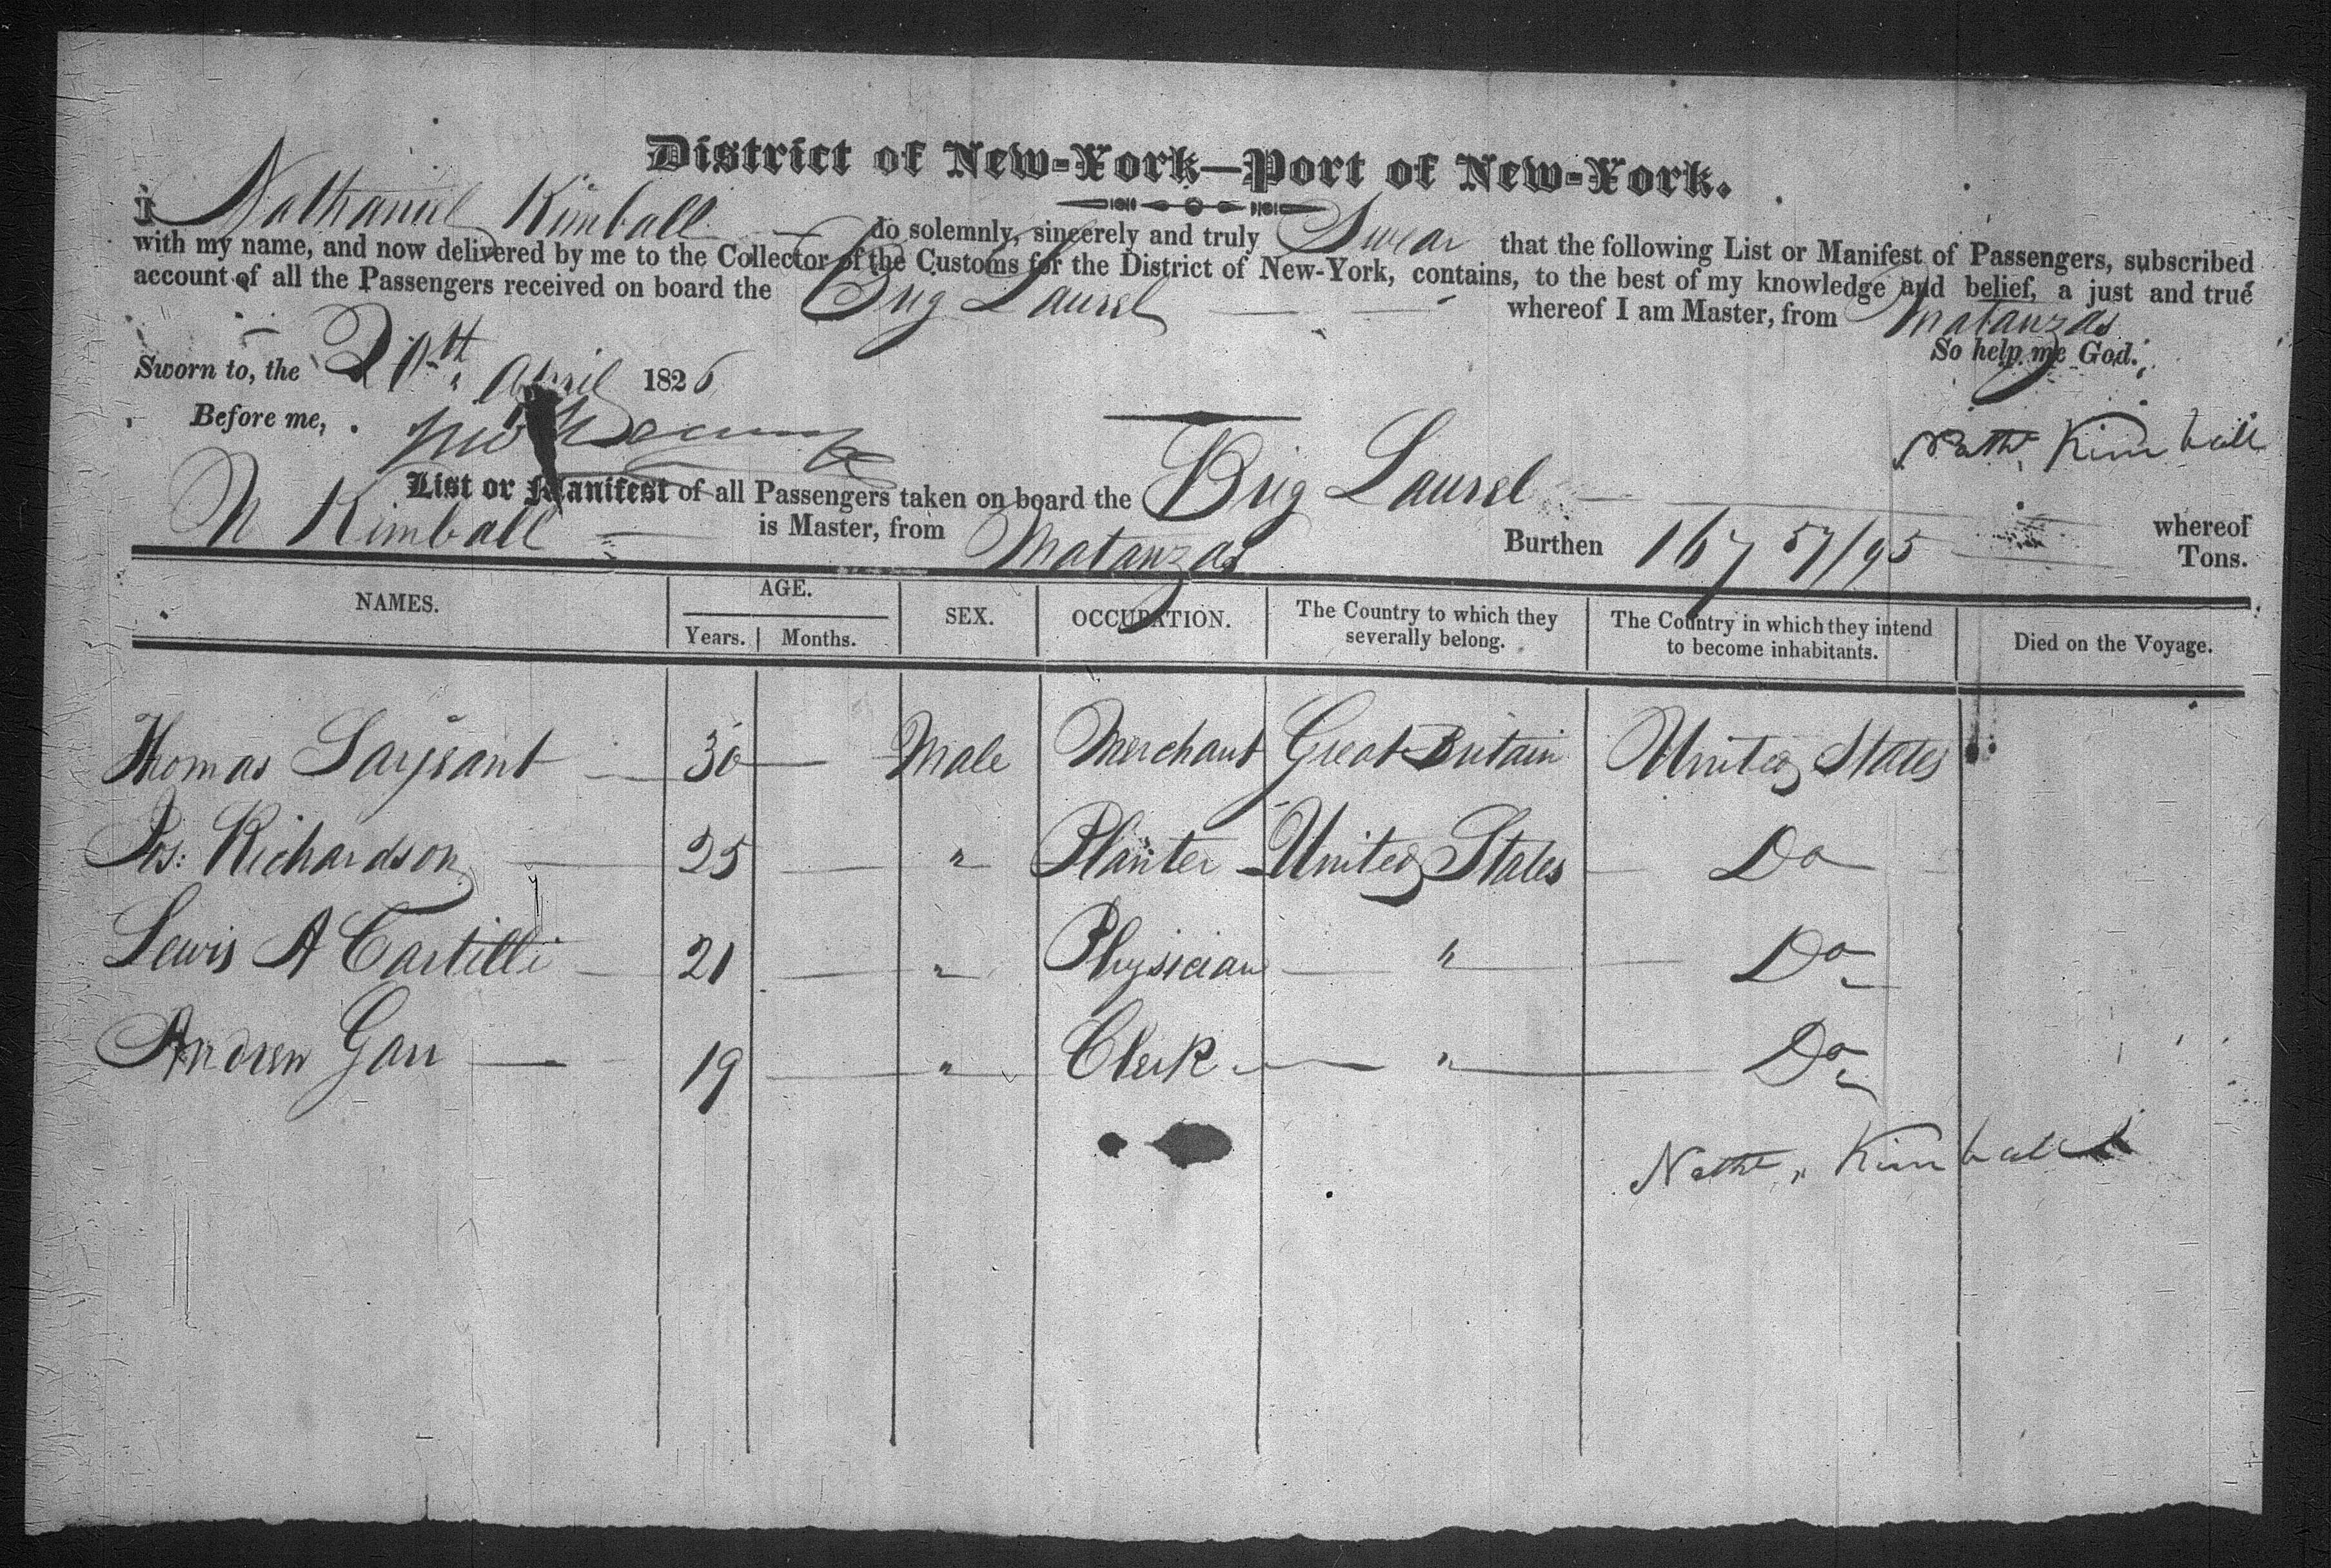 District of New-York—Port of New-York.
I Nathaniel Kimball do solemnly, sincerely and truly Swear that the following List or Manifest of Passengers, subscribed
with my name, and now delivered by me to the Collector of the Customs for the District of New-York, contains, to the best of my knowledge and belief, a just and true
account of all the Passengers received on board the Brig Laurel whereof I am Master, from Matanzas
So help me God.
Sworn to, the April 1826
Before me,
Nathl Kimball
List or Manifest of all Passengers taken on board the Brig Laurel whereof
N Kimball is Master, from Matanzas Burthen 167 57/95 Tons.
NAMES. AGE. SEX. OCCUPATION. The Country to which they severally belong. The Country in which they intend to become inhabitants. Died on the Voyage.
Years. Months.
Thomas Sargeant 30 — Male Merchant Great Britain United States
Jos: Richardson 25 — " Planter United States Do
Lewis A Cartilli 21 — " Physician " Do
Andrew Garr 19 — " Clerk " Do
Nathl Kimball